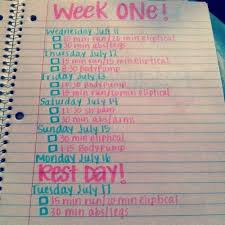 Week One!
Wednesday July 11
15 min run/20 min elliptical
30 min abs/legs
Thursday July 12
15 min run/10 min elliptical
8:30 Body Pump
Friday July 13
Body Pump
15 min run/10 min elliptical
Saturday July 14
30 min abs/arms
Sunday July 15
30 min elliptical
1:15 Body Pump
Monday July 16
Rest Day!
Tuesday July 17
15 min run/20 min elliptical
30 min abs/legs